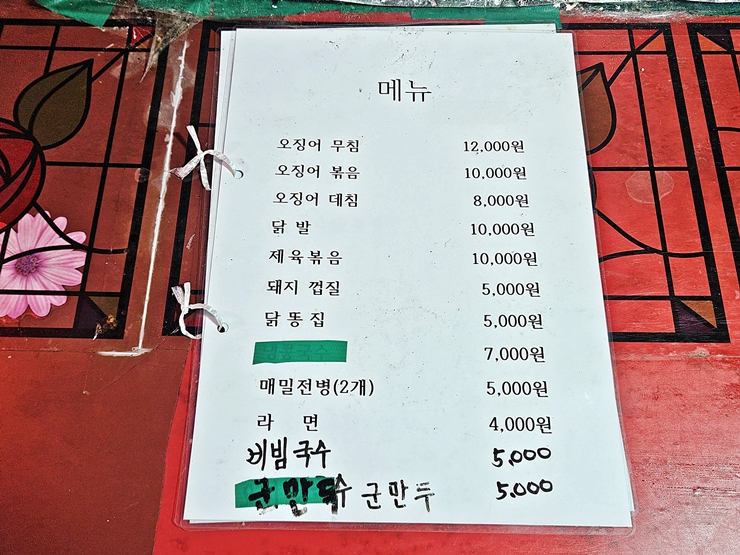 메뉴
오징어 무침 12,000원
오징어 볶음 10,000원
오징어 데침 8,000원
닭 발 10,000원
제육볶음 10,000원
돼지 껍질 5,000원
닭 똥 집 5,000원
7,000원
매밀전병(2개) 5,000원
라 면 4,000원
비빔국수 5,000
군만두 5,000